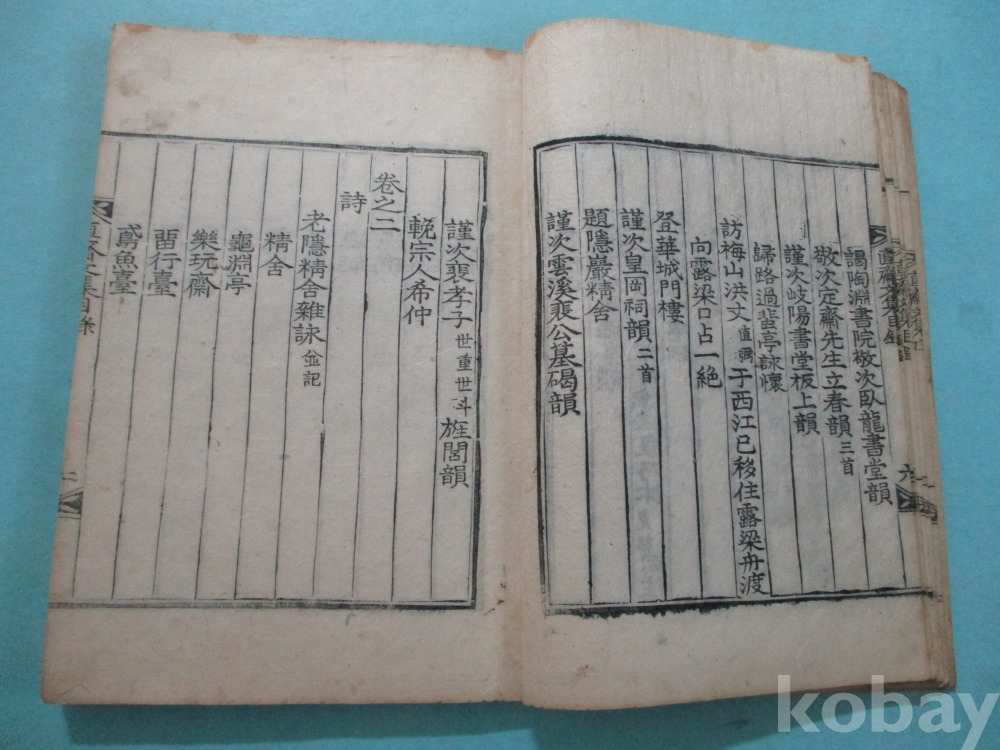 謁陶淵書院敬次臥龍書堂韻
敬次定齋先生立春韻 三首
謹次岐陽書堂板上韻
歸路過蜚亭詠懷
訪梅山洪丈 直弼 于西江已移住露梁舟渡
向露梁口占一絶
登華城門樓
謹次皇岡祠韻 二首
題隱巖精舍
謹次雲溪裴公墓碣韻
謹次裴孝子 世重世斗 旌閭韻
輓宗人希仲
卷之二
詩
老隱精舍雜詠 並記
精舍
龜淵亭
樂玩齋
習行臺
鳶魚臺
kobay